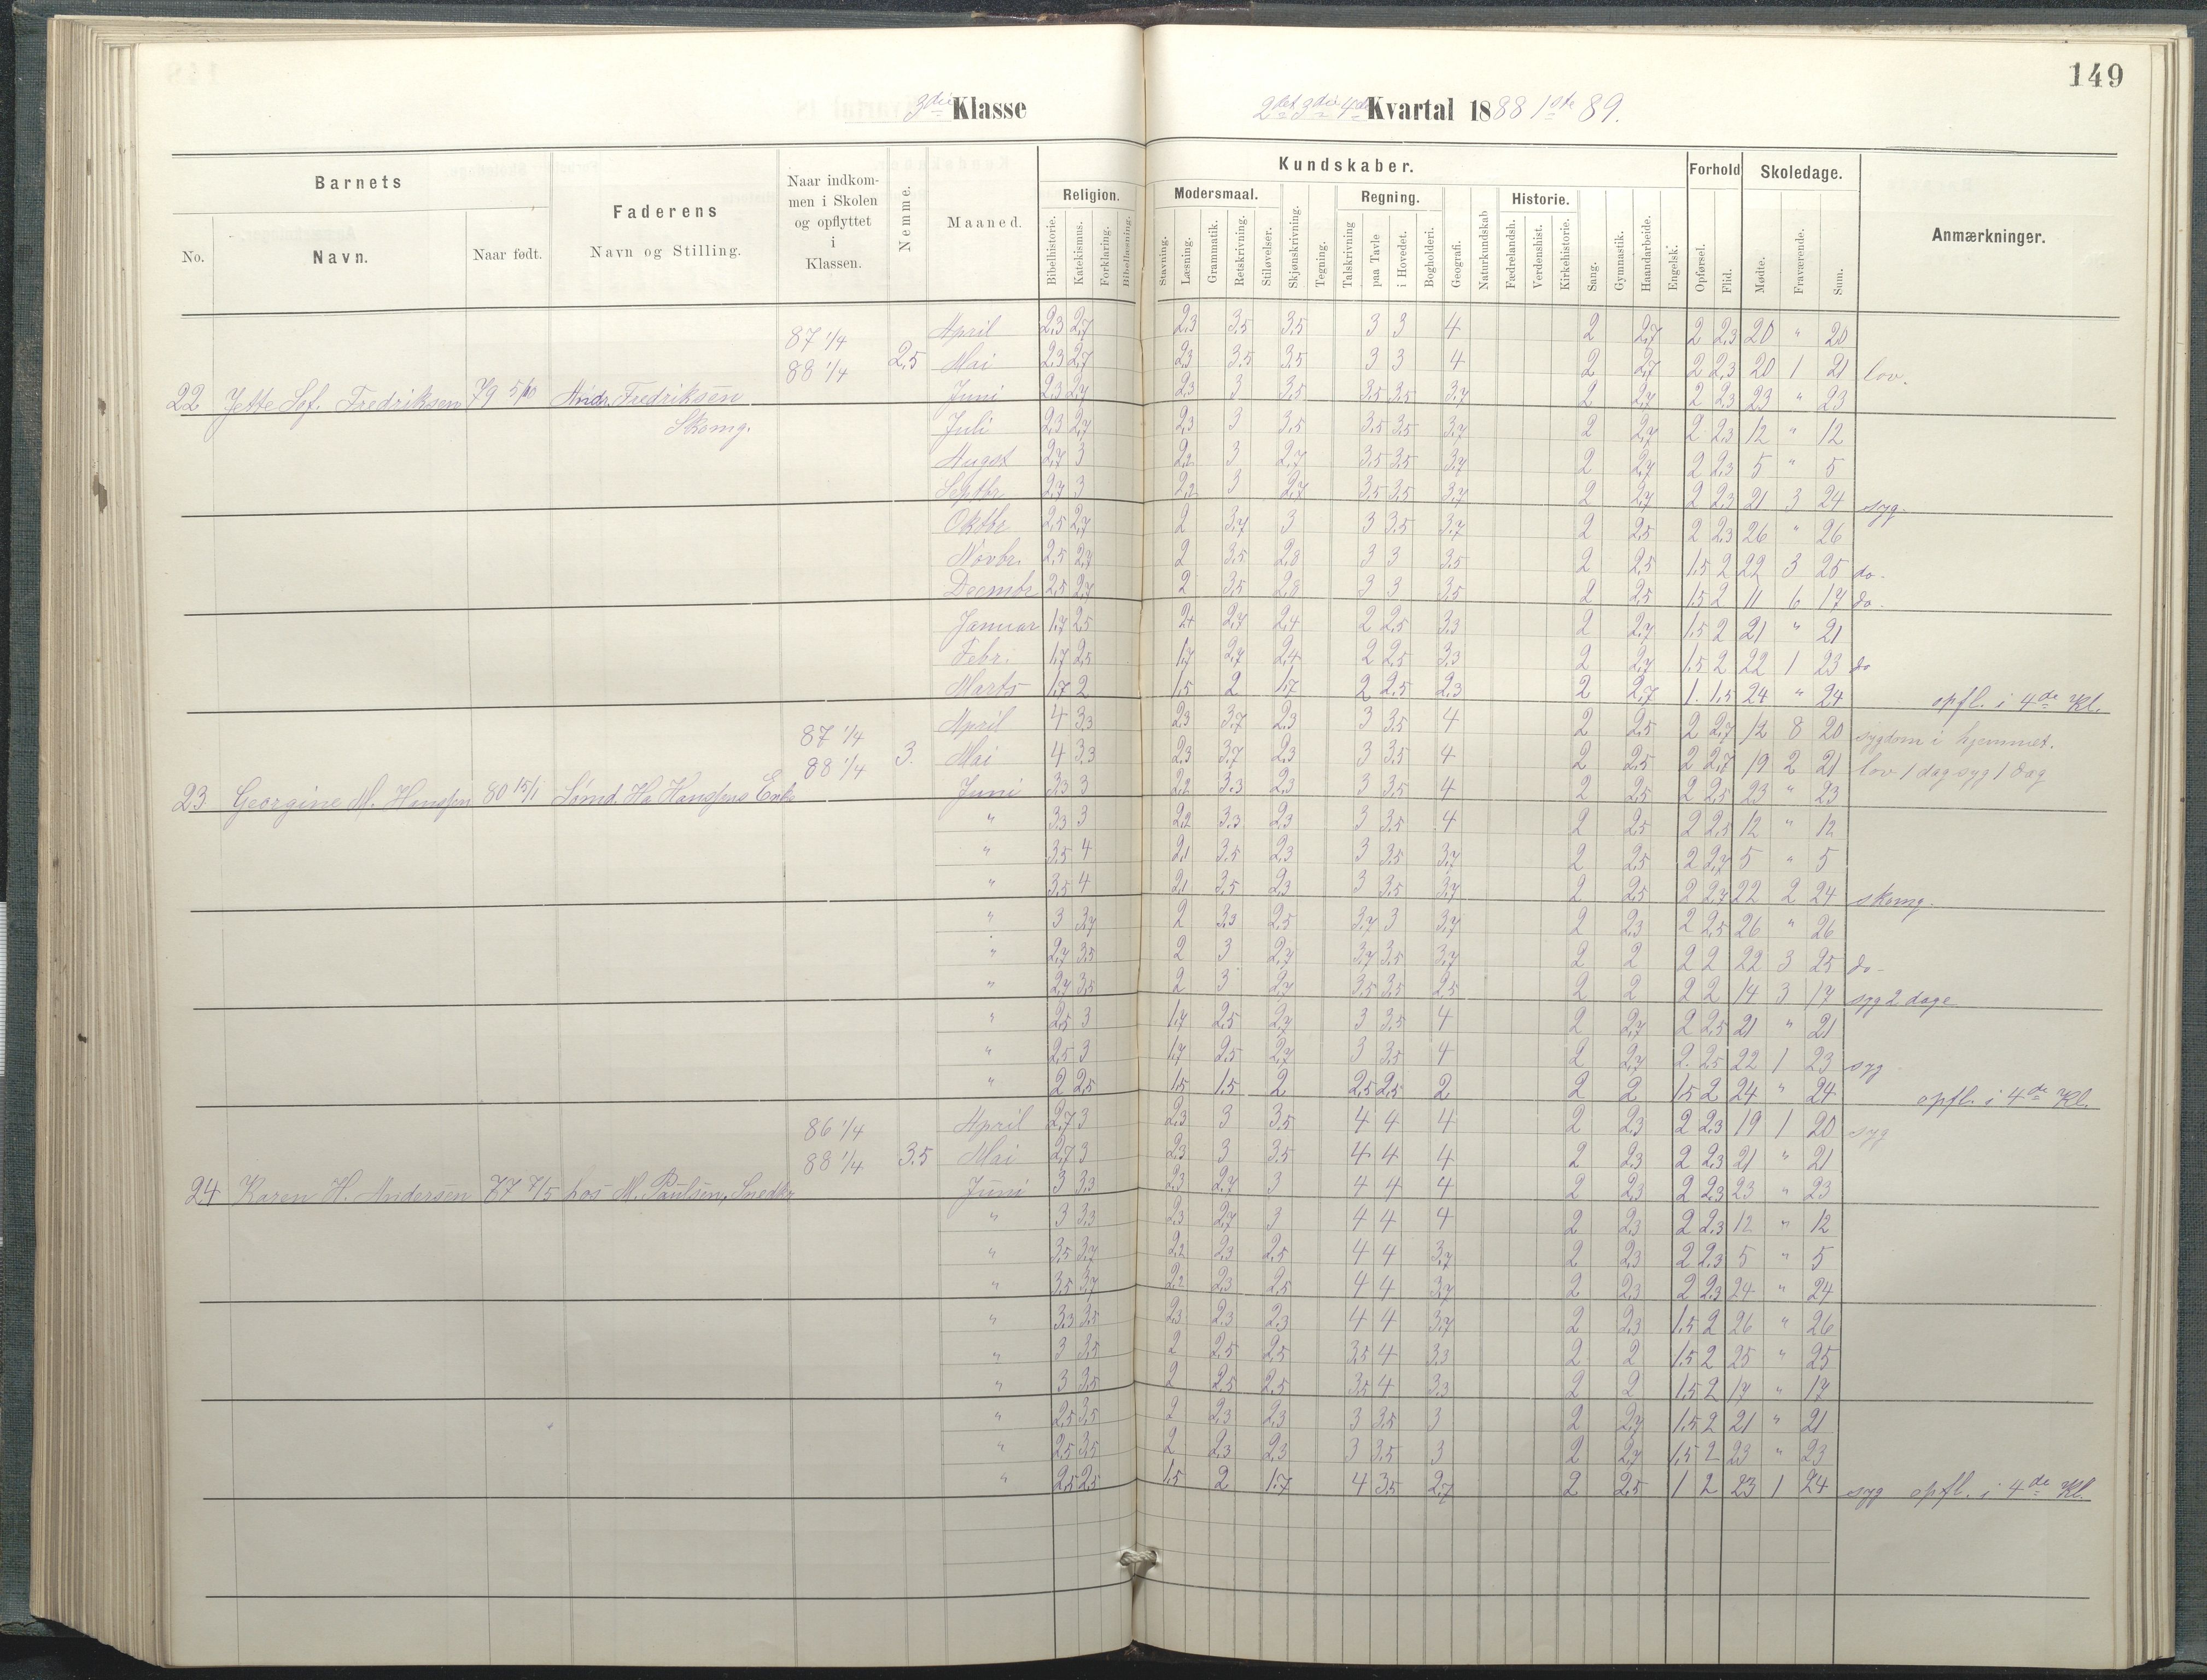 149
3die Klasse 2det 3die 4de Kvartal 1888 1ste 89.
Barnets Faderens Naar indkommen i Skolen og opflyttet i Klassen. Nemme. Maaned. Kundskaber. Forhold Skoledage. Anmærkninger.
No. Navn. Naar født. Navn og Stilling. Religion. Modersmaal. Regning. Historie.
Bibelhistorie. Katekismus. Forklaring. Bibellæsning. Stavning. Læsning. Grammatik. Retskrivning. Stiløvelser. Skjønskrivning. Tegning. Talskrivning paa Tavle i Hovedet. Bogholderi. Geografi. Naturkundskab Fædrelandsh. Verdenshist. Kirkehistorie. Sang. Gymnastik. Haandarbeide. Engelsk. Opførsel. Flid. Mødte. Fraværende. Sum.
87 1/4 April 2,3 2,7 2,3 3,5 3,5 3 3 4 2 2,7 2 2,3 20 " 20
88 1/4 2,5 Mai 2,3 2,7 2,3 3,5 3,5 3 3 4 2 2,7 2 2,3 20 1 21 lov.
22 Jette Sof. Fredriksen 79 5/10 Andr. Fredriksen Juni 2,3 2,7 2,3 3 3,5 3,5 3,5 3,7 2 2,7 2 2,3 23 " 23
Skomg. Juli 2,3 2,7 2,3 3 3,5 3,5 3,5 3,7 2 2,7 2 2,3 12 " 12
August 2,7 3 2,2 3 2,7 3,5 3,5 3,7 2 2,7 2 2,3 5 " 5
Septbr. 2,7 3 2,2 3 2,7 3,5 3,5 3,7 2 2,7 2 2,3 21 3 24 syg.
Oktbr 2,5 2,7 2 3,7 3 3 3,5 3,7 2 2,5 2 2,3 26 " 26
Novbr. 2,5 2,7 2 3,5 2,8 3 3 3,5 2 2,5 1,5 2 22 3 25 do.
Decmbr 2,5 2,7 2 3,5 2,8 3 3 3,5 2 2,5 1,5 2 11 6 17 do.
Januar 1,7 2,5 2 2,7 2,4 2 2,5 3,3 2 2,7 1,5 2 21 " 21
Febr. 1,7 2,5 1,7 2,7 2,4 2 2,5 3,3 2 2,7 1,5 2 22 1 23 do
Marts 1,7 2 1,5 2 1,7 2 2,5 2,3 2 2,7 1. 1,5 24 " 24 opfl. i 4de Kl.
87 1/4 April 4 3,3 2,3 3,7 2,3 3 3,5 4 2 2,5 2 2,7 12 8 20 sygdom i hjemmet.
88 1/4 3. Mai 4 3,3 2,3 3,7 2,3 3 3,5 4 2 2,5 2 2,7 19 2 21 lov 1 dag syg 1 dag
23 Georgine M. Hanssen 80 15/1 Sømd. Ha Hanssens Enke Juni 3,3 3 2,2 3,3 2,3 3 3,5 4 2 2,5 2 2,5 23 " 23
" 3,3 3 2,2 3,3 2,3 3 3,5 4 2 2,5 2 2,5 12 " 12
" 3,5 4 2,1 3,5 2,3 3 3,5 3,7 2 2,5 2 2,7 5 " 5
" 3,5 4 2,1 3,5 2,3 3 3,5 3,7 2 2,5 2 2,7 22 2 24 skomg.
" 3 3,7 2 3,3 2,5 3,7 3 3,7 2 2,3 2 2,5 26 " 26
" 2,7 3,5 2 3 2,7 3,7 3,5 3,7 2 2 2 2 22 3 25 do-
" 2,7 3,5 2 3 2,7 3,5 3,5 2,5 2 2 2 2 14 3 17 syg 2 dage
" 2,5 3 1,7 2,5 2,7 3 3,5 4 2 2,7 2 2,5 21 " 21
" 2,5 3 1,7 2,5 2,7 3 3,5 4 2 2,7 2. 2,5 22 1 23 syg
" 2 2,5 1,5 1,5 2 2,5 2,5 2 2 2 1,5 2 24 " 24 opfl. i 4de Kl.
86 1/4 April 2,7 3 2,3 3 3,5 4 4 4 2 2,3 2 2,3 19 1 20 syg
88 1/4 3,5 Mai 2,7 3 2,3 3 3,5 4 4 4 2 2,3 2 2,3 21 " 21
24 Karen H. Andersen 77 7/5 hos M. Paulsen, Snedkr Juni 3 3,3 2,3 2,7 3 4 4 4 2 2,3 2 2,3 23 " 23
" 3 3,3 2,3 2,7 3 4 4 4 2 2,3 2 2,3 12 " 12
" 3,5 3,7 2,2 2,3 2,5 4 4 3,7 2 2,3 2 2,3 5 " 5
" 3,5 3,7 2,2 2,3 2,5 4 4 3,7 2 2,3 2 2,3 24 " 24
" 3,3 3,5 2,3 2,3 2,3 4 4 3,7 2 2,3 1,5 2 26 " 26
" 3 3,5 2 2,5 2,5 3,5 4 3,3 2 2 1,5 2 25 " 25
" 3 3,5 2 2,5 2,5 3,5 4 3,3 2 2 1,5 2 17 " 17
" 2,5 3,5 2 2,3 2,3 3 3,5 3 2 2,7 1,5 2 21 " 21
" 2,5 3,5 2 2,3 2,3 3 3,5 3 2 2,7 1,5 2 23 " 23
" 2,5 2,5 1,5 2 1,7 4 3,5 2,7 2 2,5 1 2 23 1 24 syg opfl. i 4de Kl.